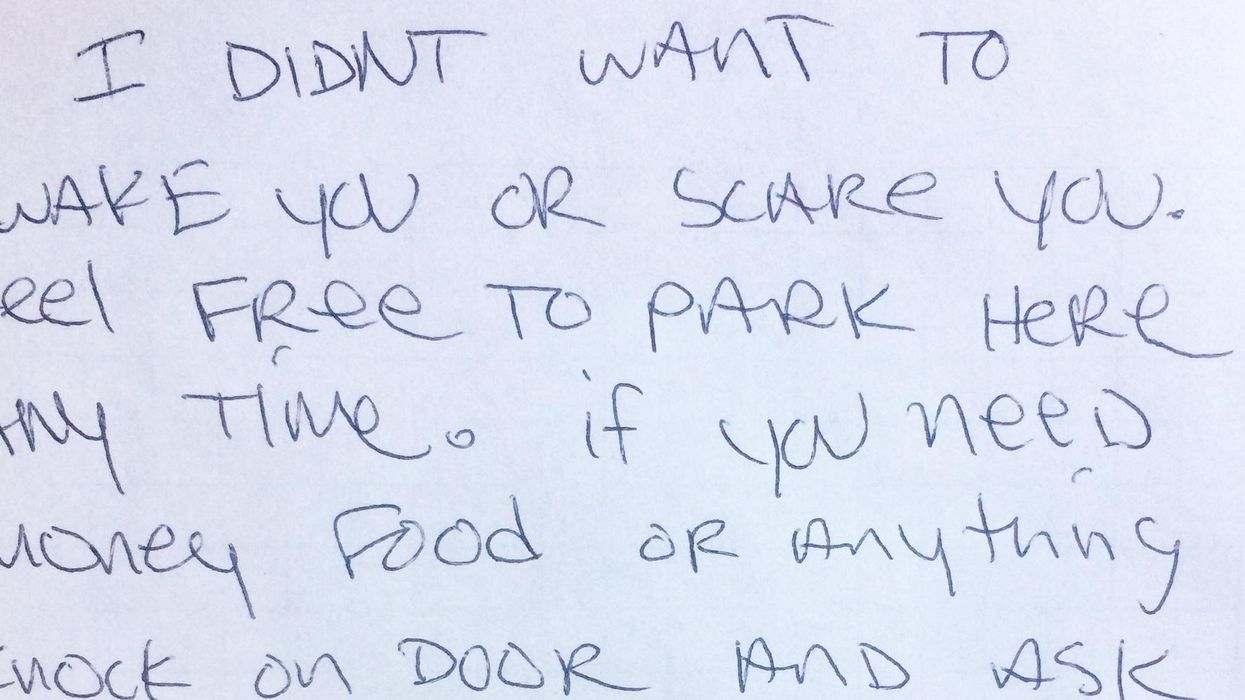 I DIDNT WANT TO
WAKE YOU OR SCARE YOU.
eel FRee TO PARK HeRe
ANY TIMe. if you neeD
money FOOd OR Anything
KNOCK on DOOR AnD ASK